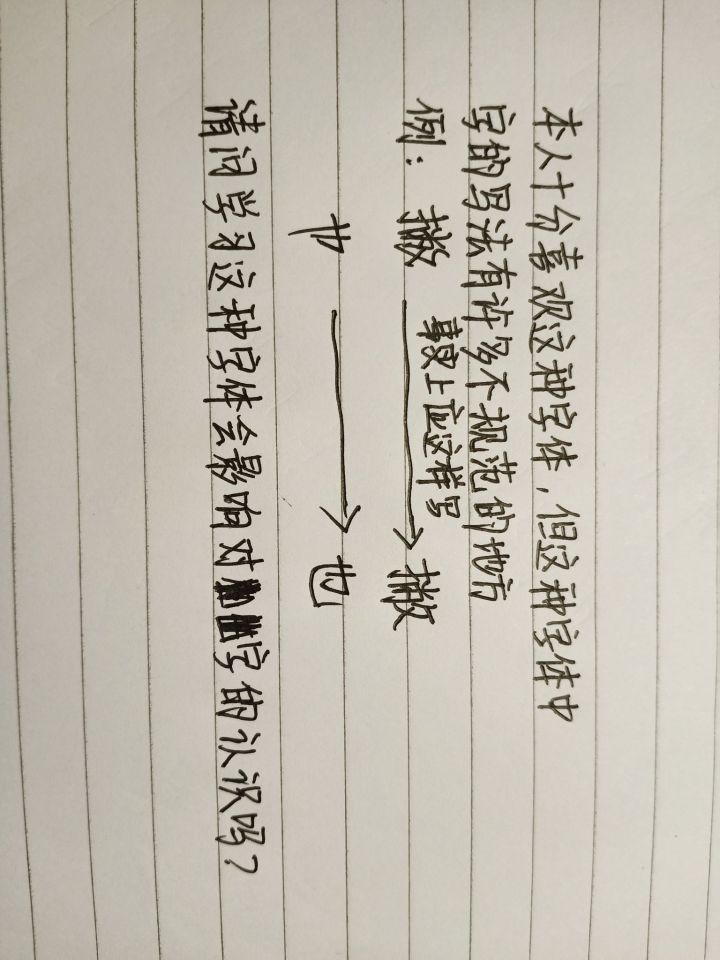 本人十分喜欢这种字体，但这种字体中
字的写法有许多不规范的地方
例：撒 事实上应这样写 撒
也 也
请问学习这种字体会影响对字的认识吗？